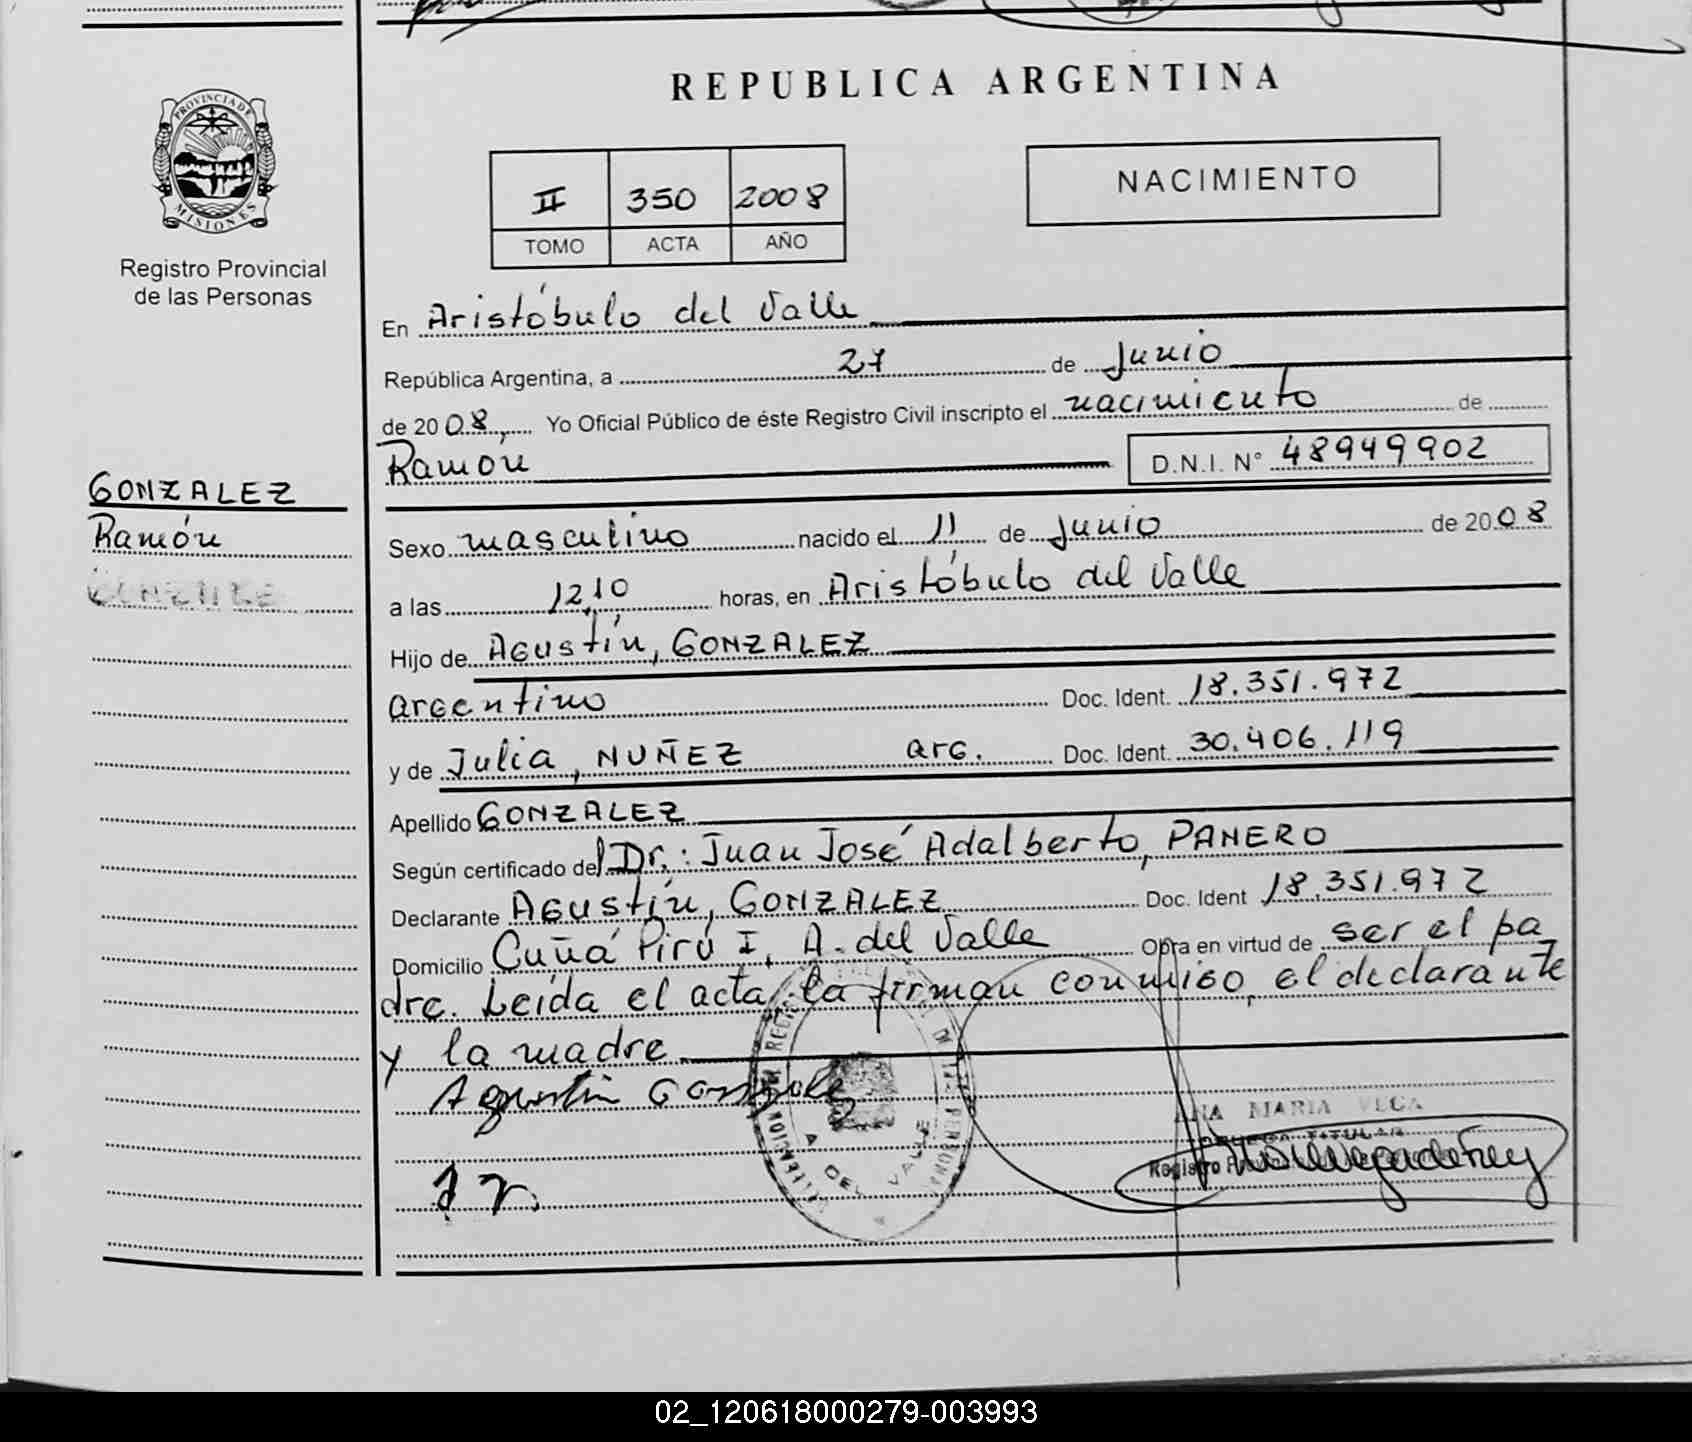 REPUBLICA ARGENTINA
PROVINCIA DE
MISIONES
Registro Provincial
de las Personas
II 350 2008
TOMO ACTA AÑO
NACIMIENTO
En Aristóbulo del Valle
República Argentina, a 27 de Junio
de 2008, Yo Oficial Público de éste Registro Civil inscripto el nacimiento de
Ramón D.N.I. N° 48949902
GONZALEZ
Ramón
Sexo masculino nacido el 11 de Junio de 2008
a las 12,10 horas, en Aristóbulo del Valle
Hijo de Agustín, GONZALEZ
argentino Doc. Ident. 18.351.972
y de Julia, NUÑEZ arg. Doc. Ident. 30.406.119
Apellido GONZALEZ
Según certificado del Dr.: Juan José Adalberto, PANERO
Declarante Agustín, GONZALEZ Doc. Ident 18.351.972
Domicilio Cuñá Pirú I, A. del Valle Obra en virtud de ser el pa
dre. Leída el acta, la firman conmigo, el declarante
y la madre
Agustin Gonzalez
A DEL VALLE
J N.
ANA MARIA VEGA
TITULAR
Registro
02_120618000279-003993